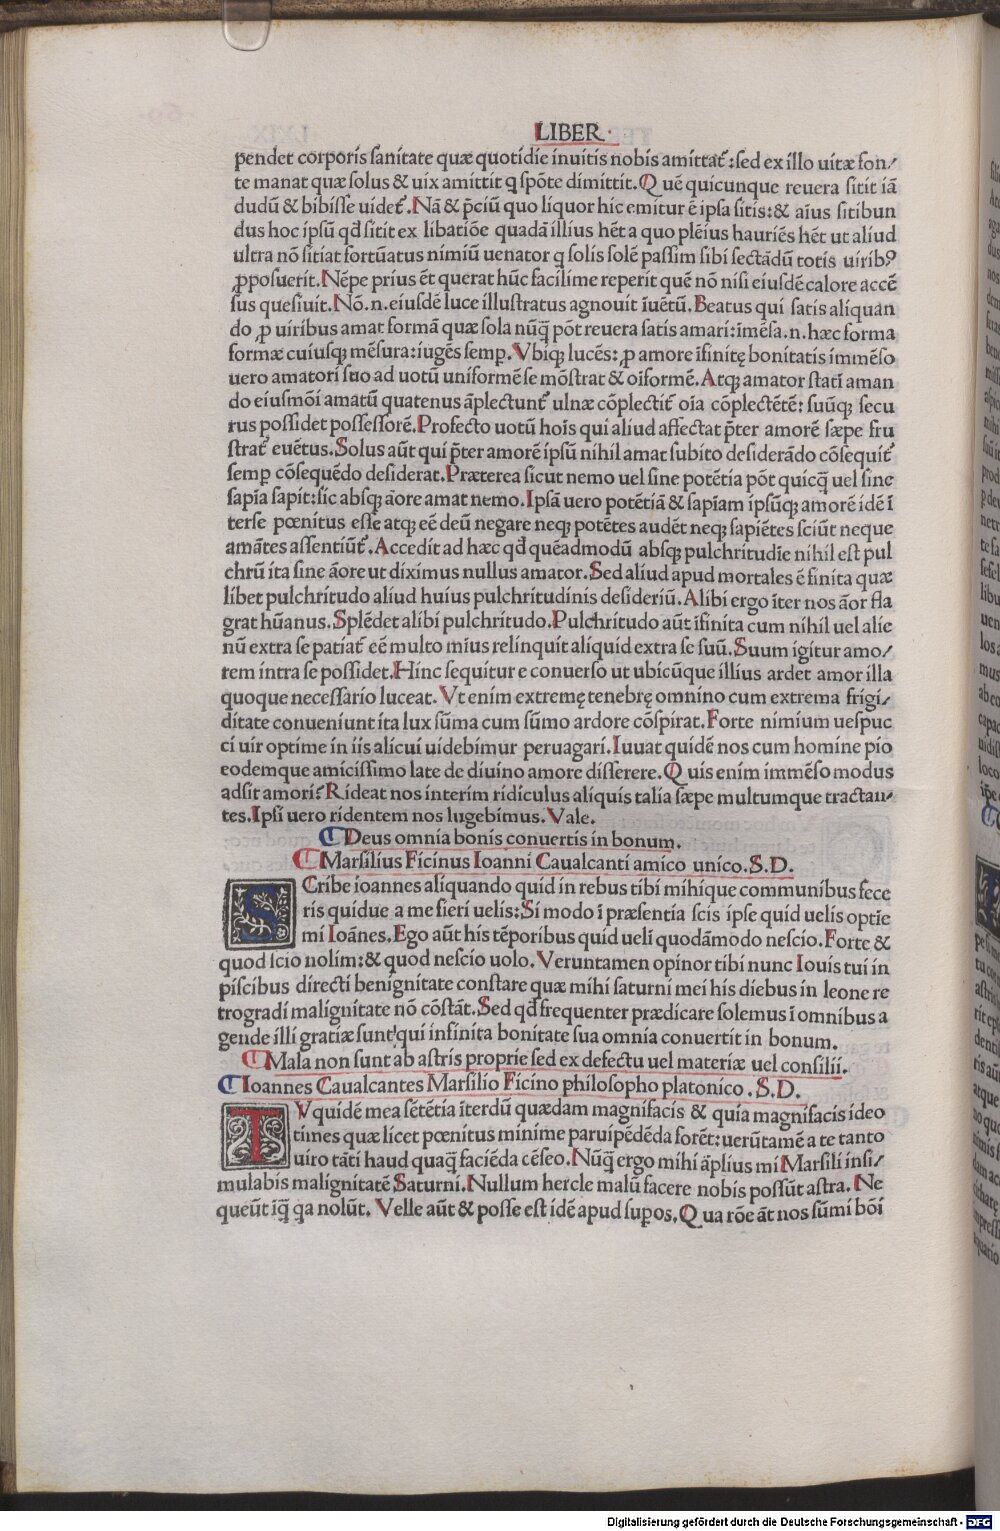 LIBER
pendet corporis sanitate quæ quotidie inuitis nobis amittat᷑: sed ex illo uitæ fon/
te manat quæ solus & uix amittit q spōte dimittit. Quē quicunque reuera sitit iā
dudū & bibisse uidet᷑. Nā & p̄ciū quo liquor hic emitur ē ipsa sitis: & aīus sitibun
dus hoc ipsū qd̄ sitit ex libatiōe quadā illius hēt a quo plēius hauriēs hēt ut aliud
ultra nō sitiat fortūatus nimiū uenator q solis solē passim sibi sectādū totis uirib⁹
ꝓposuerit. Nēpe prius ēt querat hūc facilime reperit quē nō nisi eiusdē calore accē
sus quesiuit. Nō .n. eiusdē luce illustratus agnouit īuētū. Beatus qui satis aliquan
do ꝓ uiribus amat formā quæ sola nūq̄ pōt reuera satis amari: īmēsa .n. hæc forma
formæ cuiusq; mēsura: iugēs semꝑ. Vbiq; lucēs: ꝓ amore īfinitę bonitatis immēso
uero amatori suo ad uotū uniformē se mōstrat & oīformē. Atq; amator statī aman
do eiusmōi amatū quatenus āplectunt᷑ ulnæ cōplectit᷑ oīa cōplectētē: suūq; secu
rus possidet possessorē. Profecto uotū hoīs qui aliud affectat p̄ter amorē sæpe fru
strat᷑ euētus. Solus aūt qui p̄ter amorē ipsū nihil amat subito desiderādo cōsequit᷑
semꝑ cōsequēdo desiderat. Præterea sicut nemo uel sine potētia pōt quicq̄ uel sine
sapīa sapit: sic absq; āore amat nemo. Ipsā uero potētiā & sapīam ipsūq; amorē idē ī
terse pœnitus esse atq; eē deū negare neq; potētes audēt neq; sapiētes sciūt neque
amātes assentiūt᷑. Accedit ad hæc qd̄ quēadmodū absq; pulchritudīe nihil est pul
chrū ita sine āore ut diximus nullus amator. Sed aliud apud mortales ē finita quæ
libet pulchritudo aliud huius pulchritudinis desideriū. Alibi ergo īter nos āor fla
grat hūanus. Splēdet alibi pulchritudo. Pulchritudo aūt īfinita cum nihil uel alie
nū extra se patiat᷑ eē multo mīus relinquit aliquid extra se suū. Suum igitur amo/
rem intra se possidet. Hinc sequitur e conuerso ut ubicūque illius ardet amor illa
quoque necessario luceat. Vt enim extremę tenebrę omnino cum extrema frigi/
ditate conueniunt ita lux sūma cum sūmo ardore cōspirat. Forte nimium uespuc
ci uir optime in iis alicui uidebimur peruagari. Iuuat quidē nos cum homine pio
eodemque amicissimo late de diuino amore disserere. Quis enim immēso modus
adsit amori? Rideat nos interim ridiculus aliquis talia sæpe multumque tractan/
tes. Ipsi uero ridentem nos lugebimus. Vale.
Deus omnia bonis conuertis in bonum.
Marsilius Ficinus Ioanni Caualcanti amico unico. S.D.
SCribe ioannes aliquando quid in rebus tibi mihique communibus fece
ris quidue a me fieri uelis: Si modo ī præsentia scis ipse quid uelis optīe
mi Ioānes. Ego aūt his tēporibus quid uelī quodāmodo nescio. Forte &
quod scio nolim: & quod nescio uolo. Veruntamen opinor tibi nunc Iouis tui in
piscibus directi benignitate constare quæ mihi saturni mei his diebus in leone re
trogradi malignitate nō cōstāt. Sed qd̄ frequenter prædicare solemus ī omnibus a
gende illi gratiæ sunt qui infinita bonitate sua omnia conuertit in bonum.
Mala non sunt ab astris proprie sed ex defectu uel materiæ uel consilii.
Ioannes Caualcantes Marsilio Ficino philosopho platonico. S.D.
TV quidē mea sētētia īterdū quædam magnifacis & quia magnifacis ideo
times quæ licet pœnitus minime paruipēdēda forēt: uerūtamē a te tanto
uiro tāti haud quaq̄ faciēda cēseo. Nūq̄ ergo mihi āplius mi Marsili insi/
mulabis malignitatē Saturni. Nullum hercle malū facere nobis possūt astra. Ne
queūt īq̄ qa nolūt. Velle aūt & posse est idē apud suꝑos. Qua rōe āt nos sūmi bōi
Digitalisierung gefördert durch die Deutsche Forschungsgemeinschaft - DFG